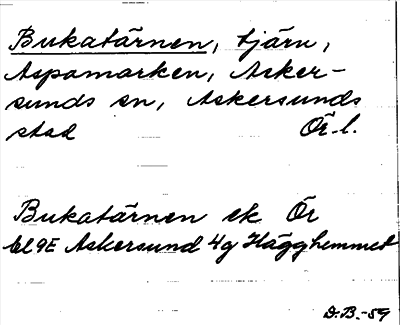 Bukatärnen, tjärn,
Aspamarken, Asker-
sunds sn, Askersunds
stad Ör. l.
Bukatärnen ek Ör
bl 9E Askersund 4g Hägghemmet
D.B.-59